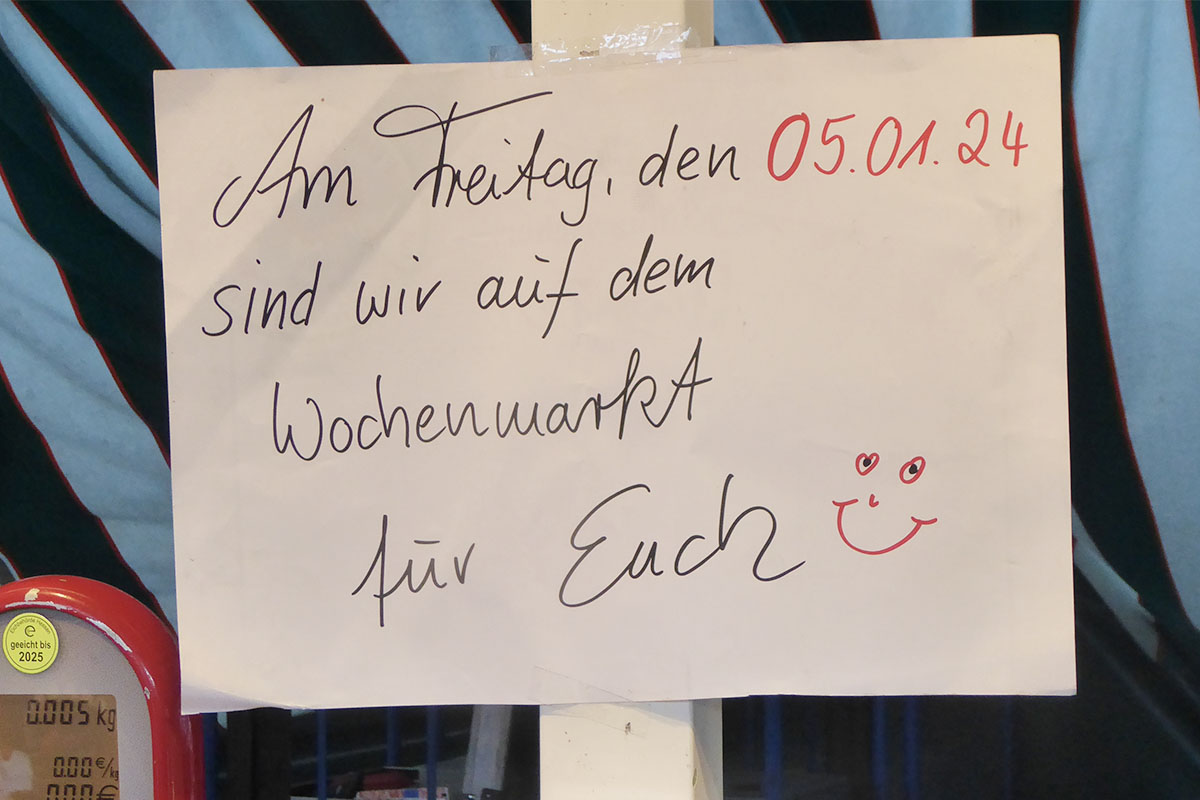 Am Freitag, den 05.01.24
sind wir auf dem
Wochenmarkt
für Euch
Eichbehörde Hessen
e
geeicht bis
2025
0.005 kg
0.00 €/kg
0.00 €